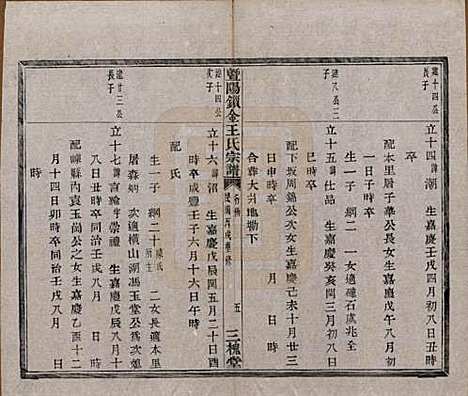 建十四公
長子
立十四諱湖 生嘉慶壬戌四月初八日丑時
卒
配本里屠子華公長女生嘉慶甲子八月初
一日子時卒
建八公二
子
立十五諱 生嘉慶癸亥閏三月初八日
巳時卒
生子一綱二 一女適磕石虞兆全
配下坂周錦公次女生嘉慶己未十月廿三
日申時卒 月 日 時
合葬大六地塝下
暨陽鎖金王氏宗譜
五
三槐堂
建十四公
次子
立十六諱沼 生嘉慶戊辰閏五月二十日酉
時卒咸豐壬子六月十六日午時
配氏
建廿三公
長子
生一子綱二十 二女長適本
里屠森炳次適橫山湖馮玉堂公長子
立十七諱言綸字崇禮 生嘉慶戊辰八月十
八日丑時卒同治壬戌八月 日 時
配湖西坑內袁玉尚公之女生嘉慶乙酉十二
月十四日卯時卒同治壬戌八月 日
時